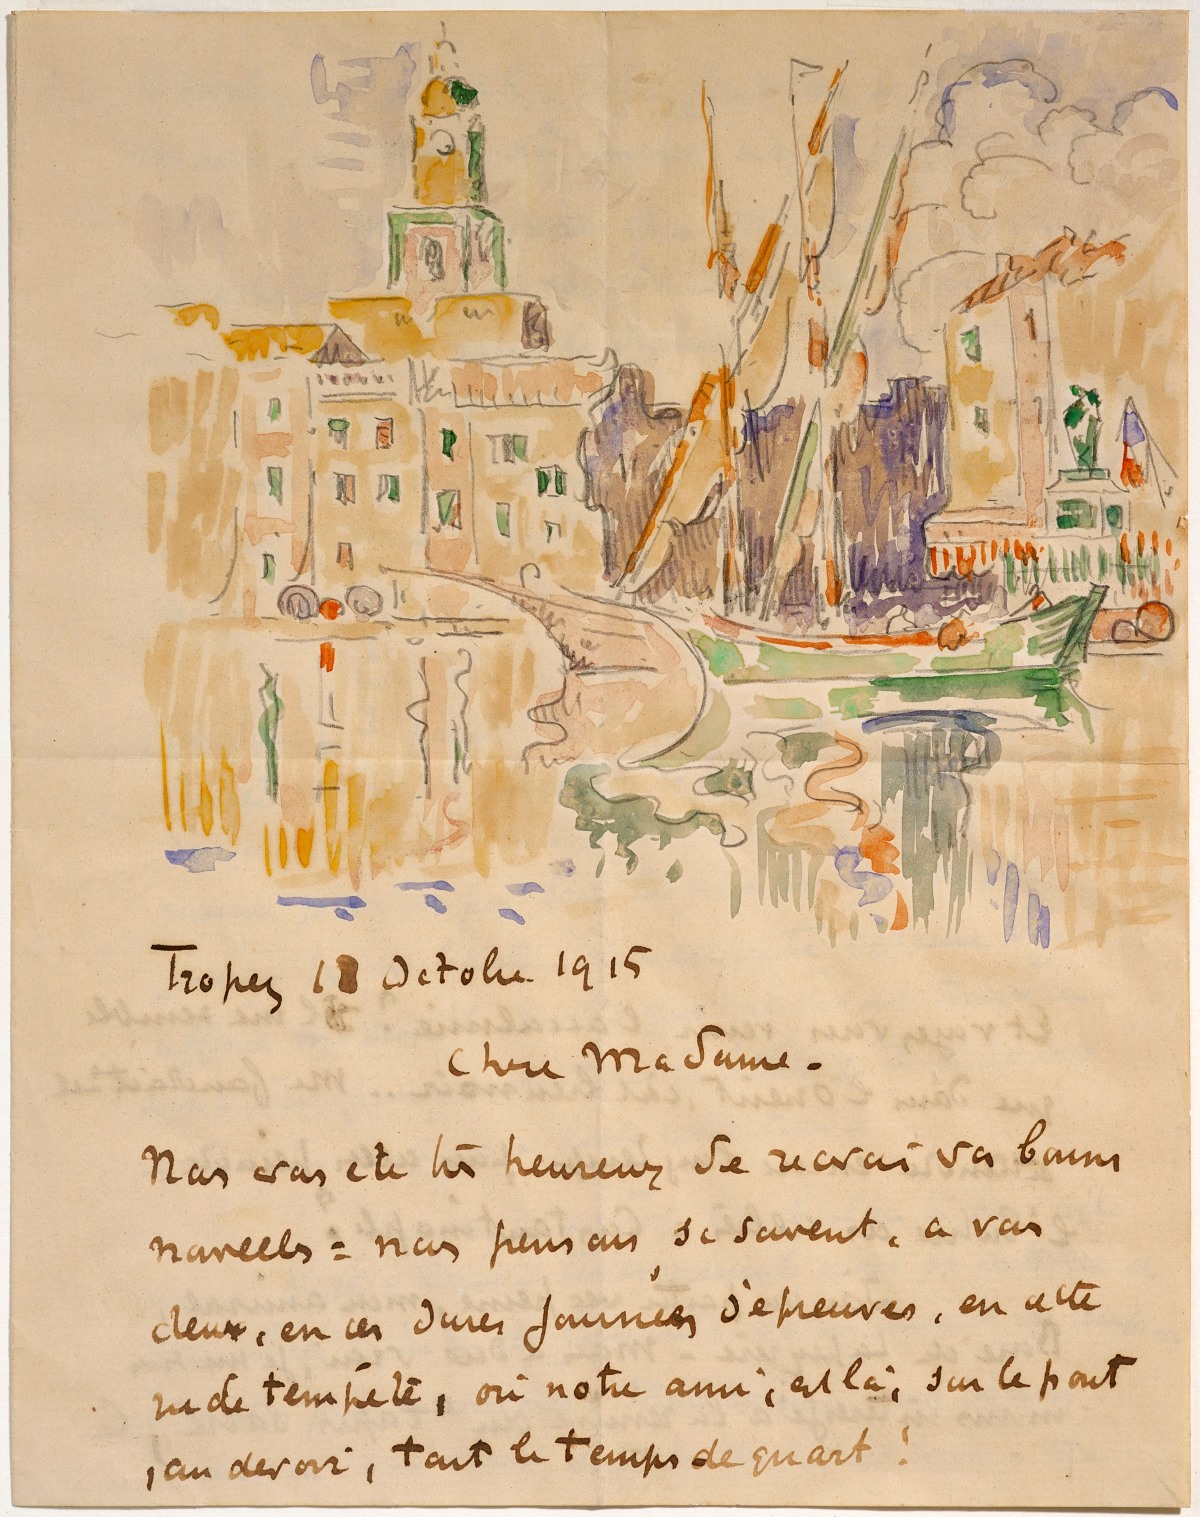 Tropez 18 Octobre 1915
Chère Madame.
Nous avons été très heureux de recevoir vos bonnes
nouvelles = nous pensons, si souvent, à vous
deux, en ces dures journées d'épreuves, en cette
rude tempête, où notre ami, est là, sur le pont
, au devoir, tout le temps de quart !